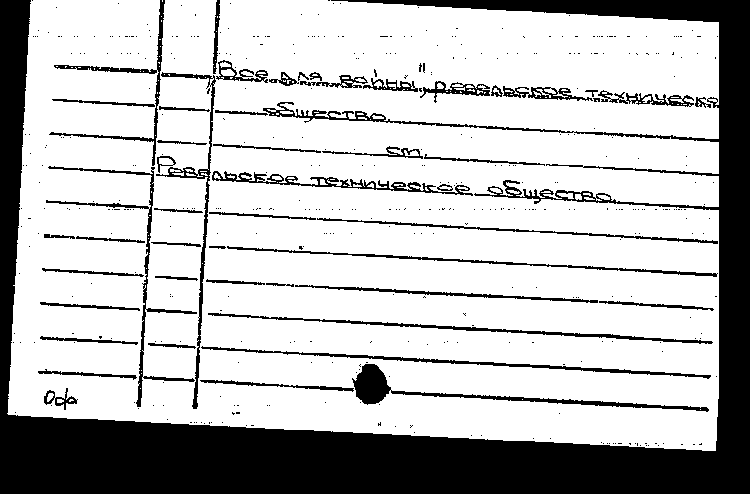 "Все для войны", ревельское техническо
общество
ст.
Ревельское техническое общество.
Оф